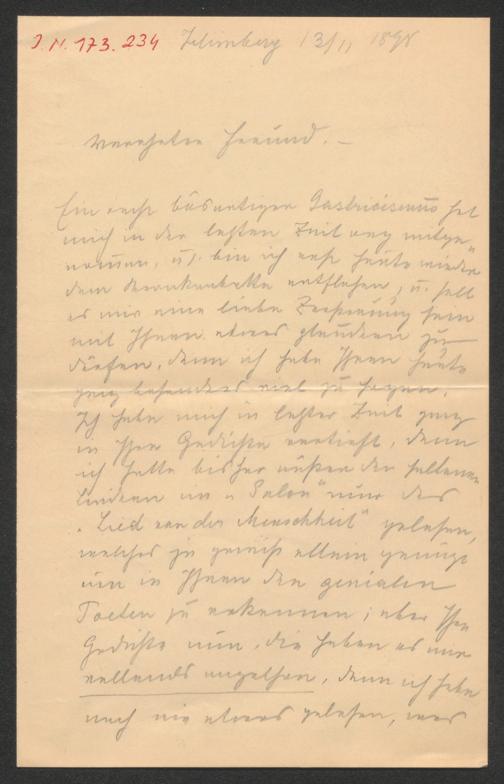 J. N. 173.234 3/11 1898
Verehrter Freund. –
Ein recht bösartiger Gastricismus hat
mich in der letzten Zeit arg mitge-
nommen, u. bin ich erst heute wieder
dem Krankenbette entflohen, u. soll
es mir eine liebe Zerstreuung sein
mit Ihnen etwas plaudern zu
dürfen, denn ich habe Ihnen heute
ganz besonders viel zu sagen.
Ich habe mich in letzter Zeit ganz
in Ihre Gedichte vertieft, denn
ich hatte bisher außer den
Liedern im „Salon" nur das
„Lied von der Menschheit" gelesen,
welches ja gewiß allein genügt
um in Ihnen den genialen
Poeten zu erkennen; aber Ihre
Gedichte nun, die haben es mir
vollends angethan, denn ich habe
noch nie etwas gelesen, was